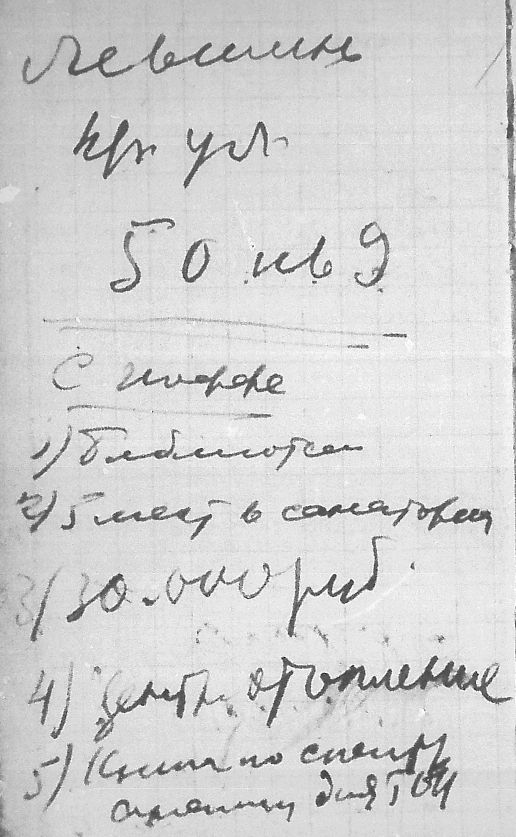 Левшинъ
Кр. ул.
50 кв 9
С Иоффе
1) Библиотеки
2) 5 мест в санатории
3) 30.000 руб.
4) Центр. отопление
5) Книги по спектр
для ГОИ